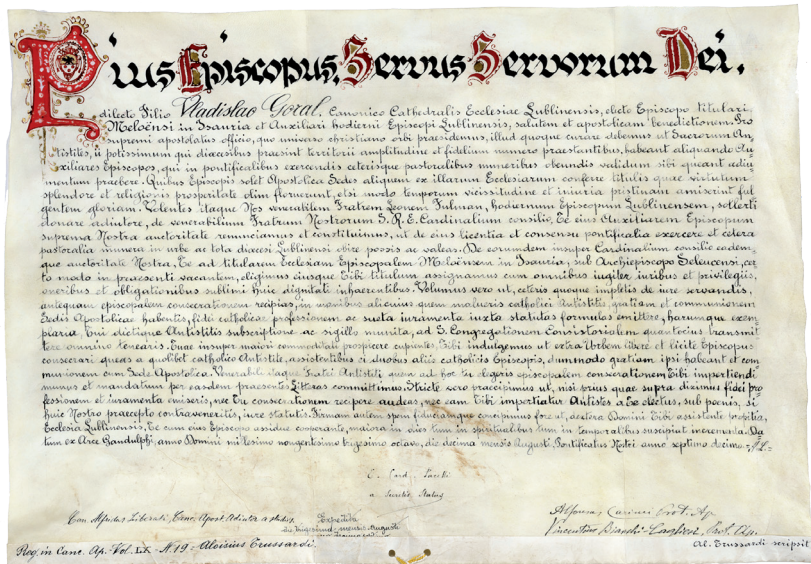 Pius Episcopus, Servus Servorum Dei,
dilecto Filio Vladislao Goral, Canonico Cathedralis Ecclesiae Lublinensis, electo Episcopo titulari
Meloënsi in Isauria et Auxiliari hodierni Episcopi Lublinensis, salutem et apostolicam benedictionem. Pro
supremi apostolatus officio, quo universo christiano orbi praesidemus, illud quoque curare debemus ut Sacrorum An-
tistites, ii potissimum qui dioecesibus praesint territorii amplitudine et fidelium numero praestantibus, habeant aliquando Au-
xiliares Episcopos, qui in pontificalibus exercendis ceterisque pastoralibus muneribus obeundis validum sibi queant adiu-
mentum praebere. Quibus Episcopis solet Apostolica Sedes aliquem ex illarum Ecclesiarum conferre titulis quae virtutum
splendore et religionis prosperitate olim floruerunt, etsi modo temporum vicissitudine et iniuria pristinam amiserint ful-
gentem gloriam. Volentes itaque Nos venerabilem Fratrem Leonem Fulman, hodiernum Episcopum Lublinensem, sollerti
donare adiutore, de venerabilium Fratrum Nostrorum S. R. E. Cardinalium consilio, Te eius Auxiliarem Episcopum
suprema Nostra auctoritate renunciamus et constituimus, ut de eius licentia et consensu pontificalia exercere et cetera
pastoralia munera in urbe ac tota dioecesi Lublinensi obire possis ac valeas. De eorumdem insuper Cardinalium consilio eadem-
que auctoritate Nostra, Te ad titularem Ecclesiam Episcopalem Meloënsem in Isauria, sub Archiepiscopo Seleucensi, cer-
to modo in praesenti vacantem, eligimus eiusque Tibi titulum assignamus cum omnibus iugiter iuribus et privilegiis,
oneribus et obligationibus sublimi huic dignitate inhaerentibus. Volumus vero ut, ceteris quoque impletis de iure servandis,
antequam episcopalem consecrationem recipias, in manibus alicuius quem malueris catholici Antistitis, gratiam et communionem
Sedis Apostolicae habentis, fidei catholicae professionem ac sueta iuramenta iuxta statutas formulas emittere, harumque exem-
plaria Tui dictique Antistitis subscriptione ac sigillo munita, ad S. Congregationem Consistorialem quantocius transmit-
tere omnino tenearis. Tuae insuper maiori commoditati prospicere cupientes, Tibi indulgemus ut extra Urbem libere et licite Episcopus
consecrari queas a quolibet catholico Antistite, assistentibus ei duobus aliis catholicis Episcopis, dummodo gratiam ipsi habeant et com-
munionem cum Sede Apostolica. Venerabili itaque Fratri Antistiti quem ad hoc tu elegeris episcopalem consecrationem Tibi impertiendi
munus et mandatum per easdem praesentes Litteras committimus. Stricte vero praecipimus ut, nisi prius quae supra diximus fidei pro-
fessionem et iuramenta emiseris, nec Tu consecrationem recipere audeas, nec eam Tibi impertiatur Antistes a Te electus, sub poenis, si
huic Nostro praecepto contraveneritis, iure statutis. Firmam autem spem fiduciamque concipimus fore ut, dextera Domini Tibi assistente propitia,
Ecclesia Lublinensis, Te cum eius Episcopo assidue cooperante, maiora in dies tum in spiritualibus tum in temporalibus suscipiat incrementa. Da-
tum ex Arce Gandulphi, anno Domini millesimo nongentesimo trigesimo octavo, die decima mensis Augusti, Pontificatus Nostri anno septimo decimo.
E. Card. Pacelli
a Secretis Status
Can. Alfridus Liberati, Canc. Apost. Adiutor a studiis.
Expedita
die vigesima mensis Augusti
Alfonsus Carinci Prot. Ap.
Vincentius Bianchi-Cagliesi, Prot. Ap.
Reg. in Canc. Ap. Vol. LX - N. 19 - Aloisius Trussardi.
Al. Trussardi scripsit